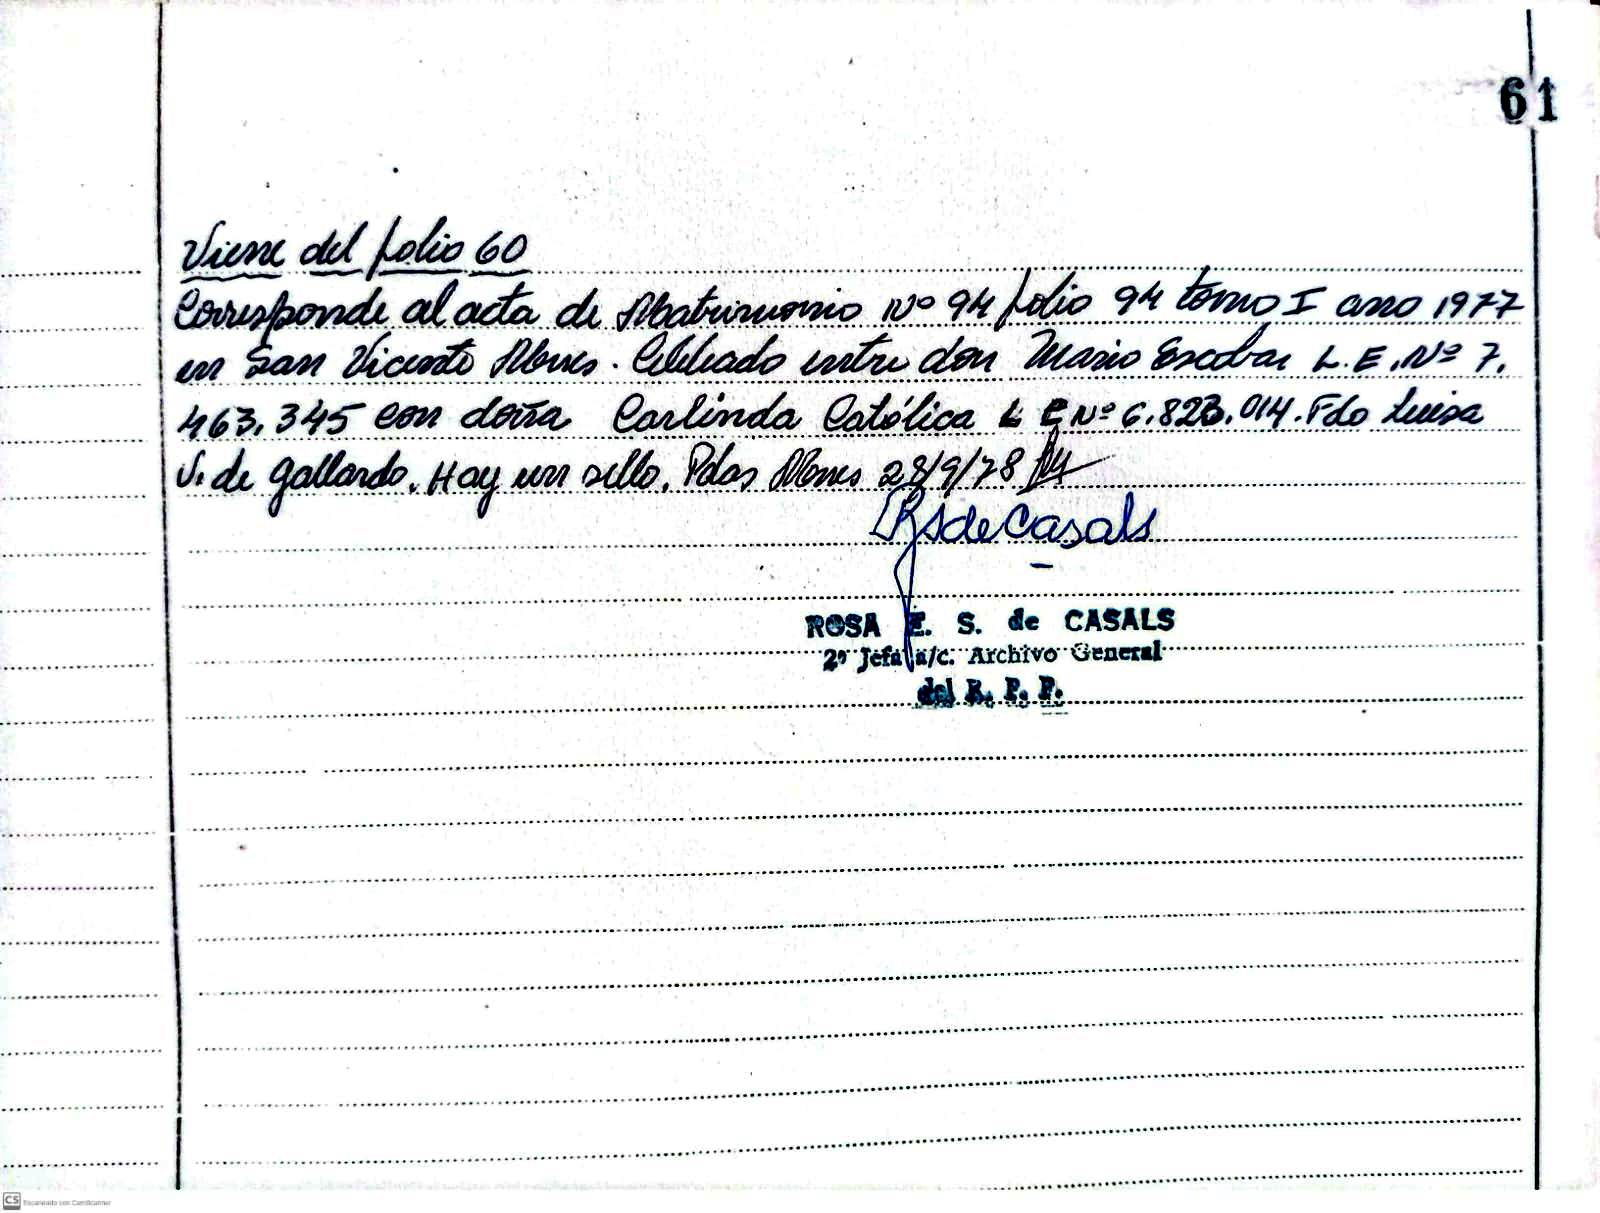 61
Viene del folio 60
Corresponde al acta de Matrimonio Nº 94 folio 94 tomo I año 1977
en San Vicente Mnes. Celebrado entre don Mario Escobar L.E. Nº 7.
463.345 con doña Carlinda Católica L E Nº 6.823.014. Fdo Luisa
V. de Gallardo. Hay un sello. Pdas Mnes 28/9/78
RSdeCasals
ROSA E. S. de CASALS
2º Jefa a/c. Archivo General
del R. P. P.
CS Escaneado con CamScanner